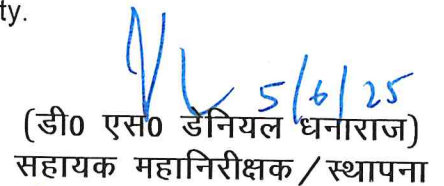 ty.
5/6/25
(डी0 एस0 डेनियल धनाराज)
सहायक महानिरीक्षक / स्थापना